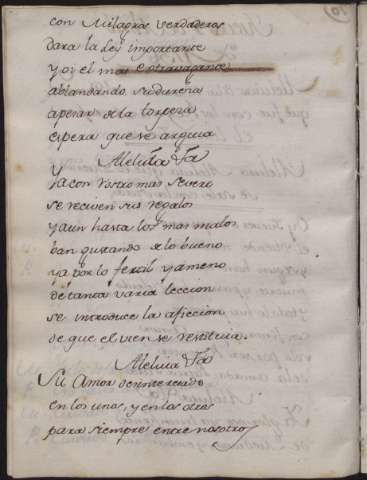 con Milagros verdaderos
dara la Ley importante
y oi el mas extravagante
ablandando su dureña
apesar de la torpeza
espera que se arguia
Aleluia &a
Ya con rostro mas severo
se reciven sus regalos
y aun hasta los mas malos
ban gustando de lo bueno
ya por lo fertil y ameno
de tanta varia leccion
se introduce la aficcion
de que el vien se restituia.
Aleluia &a
Su Amor desinteresado
en los unos, y en los otros
para siempre entre nosotros